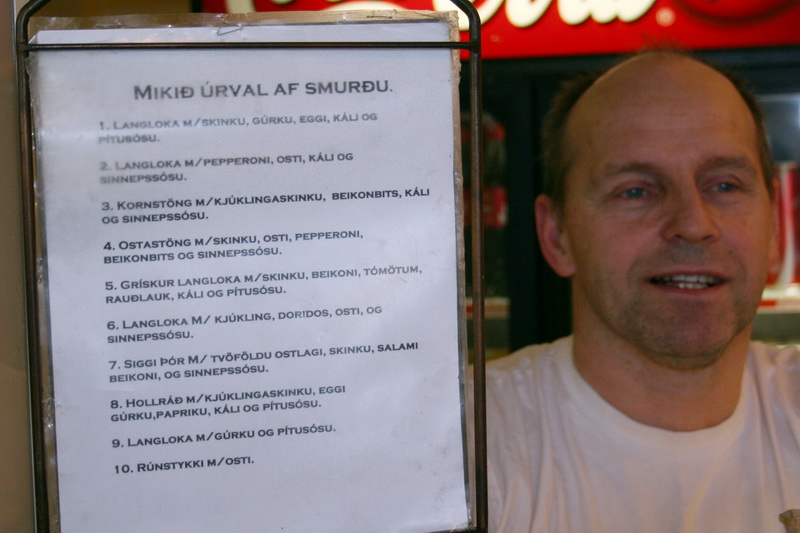 MIKIÐ ÚRVAL AF SMURÐU.
1. LANGLOKA M/SKINKU, GÚRKU, EGGI, KÁLI OG
PÍTUSÓSU.
2. LANGLOKA M/PEPPERONI, OSTI, KÁLI OG
SINNEPSSÓSU.
3. KORNSTÖNG M/KJÚKLINGASKINKU, BEIKONBITS, KÁLI
OG SINNEPSSÓSU.
4. OSTASTÖNG M/SKINKU, OSTI, PEPPERONI,
BEIKONBITS OG SINNEPSSÓSU.
5. GRÍSKUR LANGLOKA M/SKINKU, BEIKONI, TÓMÖTUM,
RAUÐLAUK, KÁLI OG PÍTUSÓSU.
6. LANGLOKA M/ KJÚKLING, DORIDOS, OSTI, OG
SINNEPSSÓSU.
7. SIGGI ÞÓR M/ TVÖFÖLDU OSTLAGI, SKINKU, SALAMI
BEIKONI, OG SINNEPSSÓSU.
8. HOLLRÁÐ M/KJÚKLINGASKINKU, EGGI
GÚRKU,PAPRIKU, KÁLI OG PÍTUSÓSU.
9. LANGLOKA M/GÚRKU OG PÍTUSÓSU.
10. RÚNSTYKKI M/OSTI.